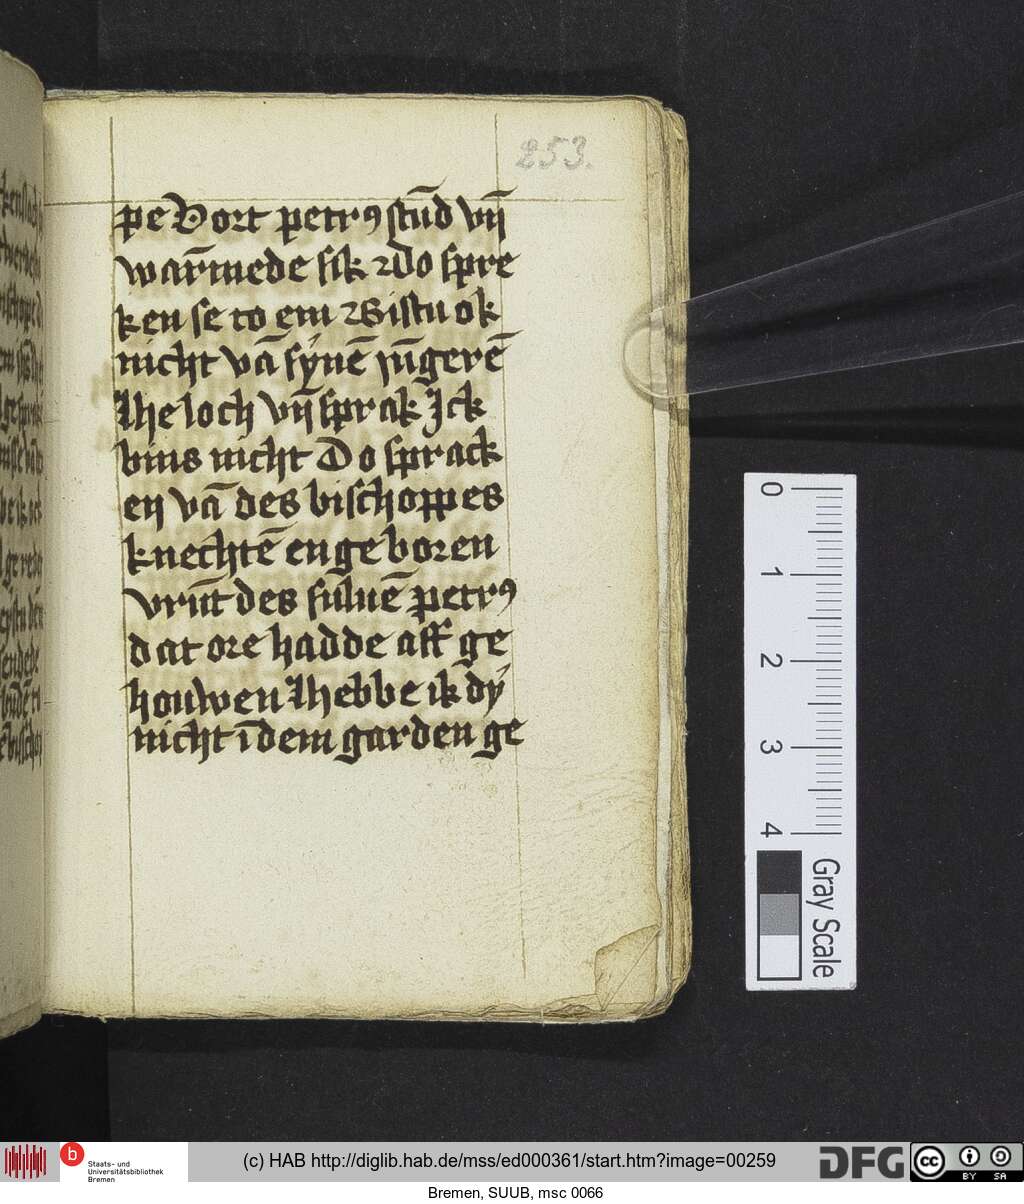 253.
pe Vort petrꝰ stūd vn̄
warmēde sik ꝛ Do spre
ken se to em Bistu ok
nicht vā synē jūgerē
He loch vn̄ sprak Ick
bins nicht Do sprack
en vā des bischoppes
knechtē en geboren
vrūt des suluē petrꝰ
dat ore hadde aff ge
houwen Hebbe ik dy
nicht ī dem garden ge
0
1
2
3
4
Gray Scale
b
Staats- und
Universitätsbibliothek
Bremen
(c) HAB http://diglib.hab.de/mss/ed000361/start.htm?image=00259
DFG
cc
BY SA
Bremen, SUUB, msc 0066